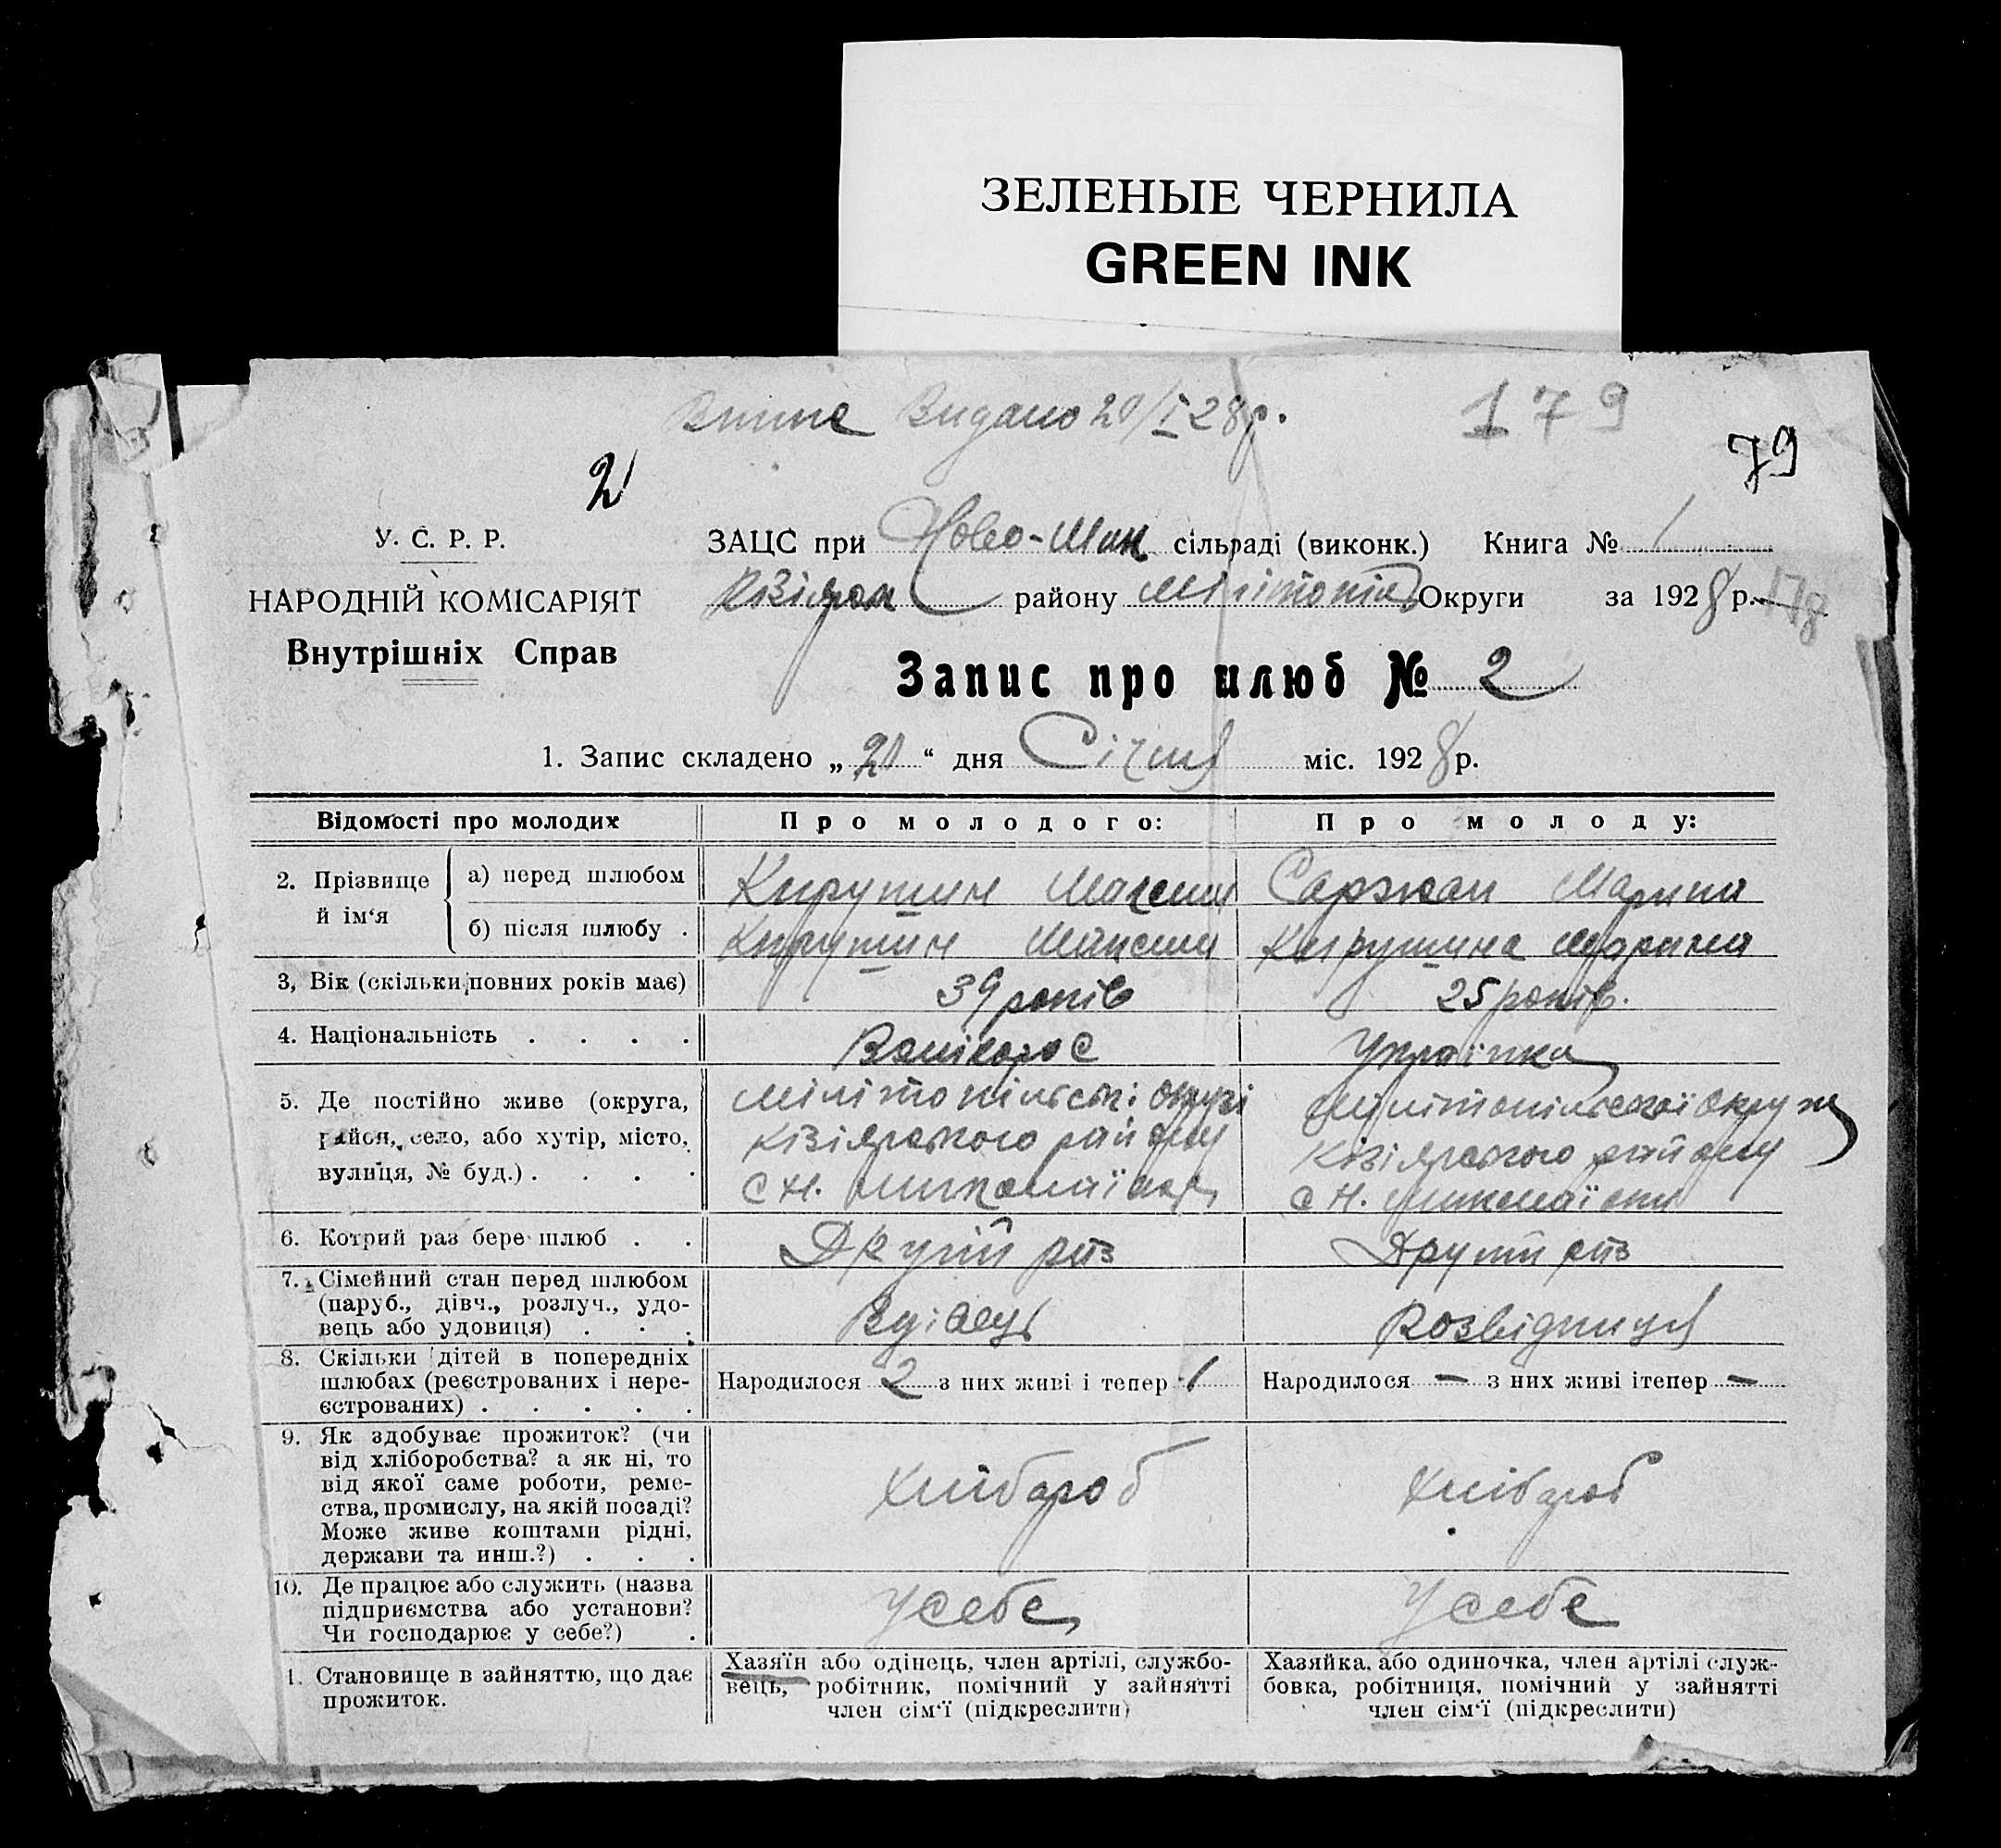 ЗЕЛЕНЫЕ ЧЕРНИЛА
GREEN INK
Видано 20/I 28 р.
179
79
2
У. С. Р. Р.
НАРОДНІЙ КОМІСАРІЯТ
Внутрішніх Справ
ЗАЦС при Ново-Мик сільраді (виконк.) Книга № 1
Кізіярськ району Мілітопіль Округи за 1928 р. 178
Запис про шлюб № 2
1. Запис складено „20“ дня Січня міс. 1928 р.
Відомості про молодих
Про молодого:
Про молоду:
2. Прізвище й ім‘я
а) перед шлюбом
Кирушин Максим
Саржан Марина
б) після шлюбу .
Кирушин Максим
Кирушина Марина
3, Вік (скільки повних років має)
39 років
25 років.
4. Національність . . . .
Велікорос
Українка
5. Де постійно живе (округа,
район, село, або хутір, місто,
вулиця, № буд.) . . . .
Мілітопільські округі
Кізіярського району
с Н. Миколаївка
Мілітопільської округи
Кізіярського району
с Н. Миколаївки
6. Котрий раз бере шлюб . .
Другий раз
Другий раз
7. Сімейний стан перед шлюбом
(паруб., дівч., розлуч., удо-
вець або удовиця) . . .
Вдівець
Розвідниця
8. Скільки дітей в попередніх
шлюбах (реєстрованих і нере-
єстрованих) . . . . .
Народилося 2 з них живі і тепер 1
Народилося — з них живі ітепер —
9. Як здобуває прожиток? (чи
від хліборобства? а як ні, то
від якої саме роботи, реме-
ства, промислу, на якій посаді?
Може живе коштами рідні,
держави та инш.?) . . .
Хлібороб
Хлібороб
10. Де працює або служить (назва
підприємства або установи?
Чи господарює у себе?) .
У себе
У себе
1. Становище в зайняттю, що дає
прожиток.
Хазяїн або одінець, член артілі, службо-
вець, робітник, помічний у зайнятті
член сім‘ї (підкреслити)
Хазяйка, або одиночка, член артілі служ-
бовка, робітниця, помічний у зайнятті
член сім‘ї (підкреслити)